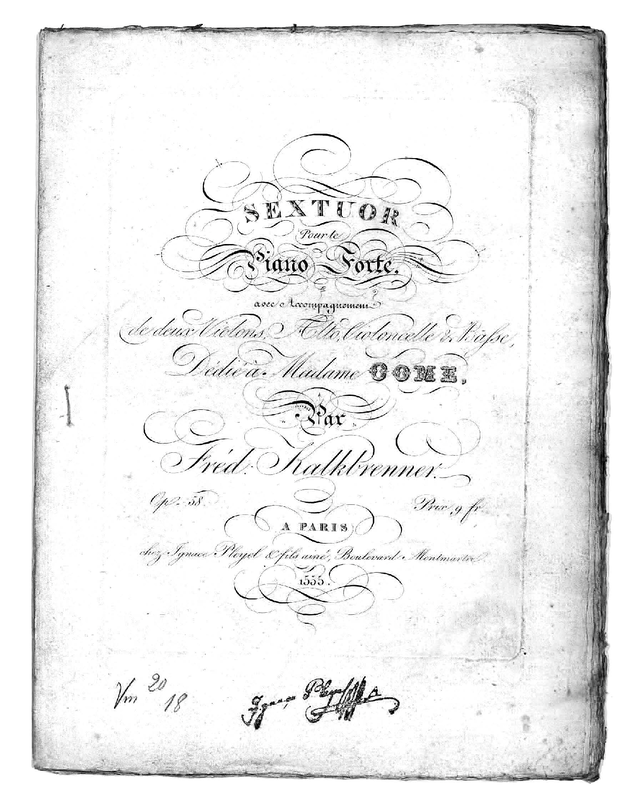 SEXTUOR
Pour le
Piano Forte,
avec Accompagnement
de deux Violons, Alto, Violoncelle & Basse,
Dédié à Madame COME,
Par
Fréd. Kalkbrenner.
Op. 58. Prix 9 fr
A PARIS
chez Ignace Pleyel & fils ainé, Boulevard Montmartre
1555.
Vm 20
18
Ignace Pleyel